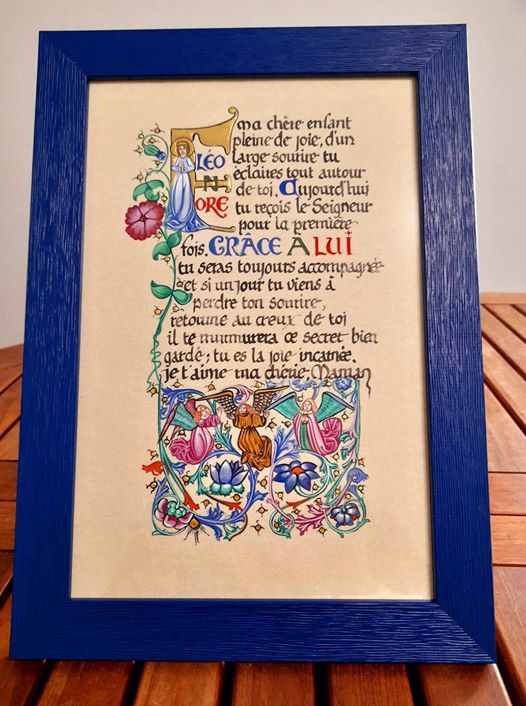 E
LÉO
N
ORE
ma chère enfant
pleine de joie, d'un
large sourire tu
éclaires tout autour
de toi. Aujourd'hui
tu reçois le Seigneur
pour la première
fois. GRÂCE A LUI
tu seras toujours accompagnée
et si un jour tu viens à
perdre ton sourire,
retourne au creux de toi
il te murmurera ce secret bien
gardé; tu es la joie incarnée.
je t'aime ma chérie. Maman